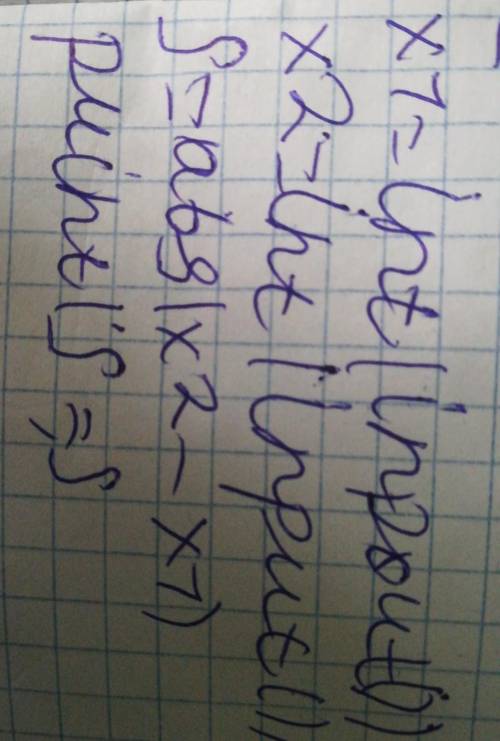 x1=int(input())
x2=int(input())
S=abs(x2-x1)
print('S=',S